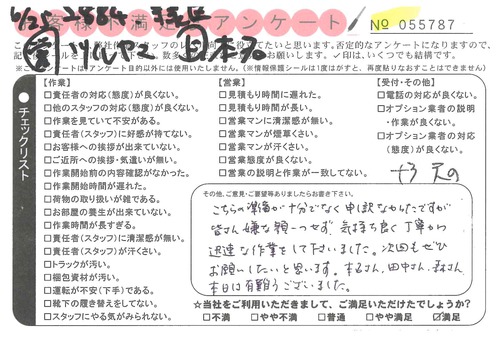 お客様不満足アンケート
№ 055787
【作業】
□責任者の対応(態度)が良くない。
□他のスタッフの対応(態度)が良くない。
□作業を見ていて不安がある。
□責任者(スタッフ)に好感が持てない。
□お客様への挨拶が出来ていない。
□ご近所への挨拶・気遣いが無い。
□作業開始前の内容確認がなかった。
□作業開始時間が遅れた。
□荷物の取り扱いが雑である。
□お部屋の養生が出来ていない。
□作業時間が長すぎる。
□責任者(スタッフ)に清潔感が無い。
□責任者(スタッフ)が汗くさい。
□トラックが汚い。
□梱包資材が汚い。
□運転が不安(下手)である。
□靴下の履き替えをしてない。
□スタッフにやる気がみられない。
【営業】
□見積もり時間に遅れた。
□見積もり時間が長い。
□営業マンに清潔感が無い。
□営業マンが煙草くさい。
□営業マンが汗くさい。
□営業態度が良くない。
□営業の説明と作業が一致してない。
【受付・その他】
□電話の対応が良くない。
□オプション業者の説明
・作業が良くない。
□オプション業者の対応
(態度)が良くない。
チェックリスト
その他、ご意見・ご要望等ありましたらお書き下さい。
こちらの準備が十分でなく申し訳なかったですが
皆さん嫌な顔一つせず、気持ち良く丁寧かつ
迅速な作業をして下さいました。次回もぜひ
お願いしたいと思います。本名さん、田中さん、森さん
本日は有難うございました。
☆当社をご利用いただきまして、ご満足いただけたでしょうか?
□不満 □やや不満 □普通 □やや満足 ☑満足